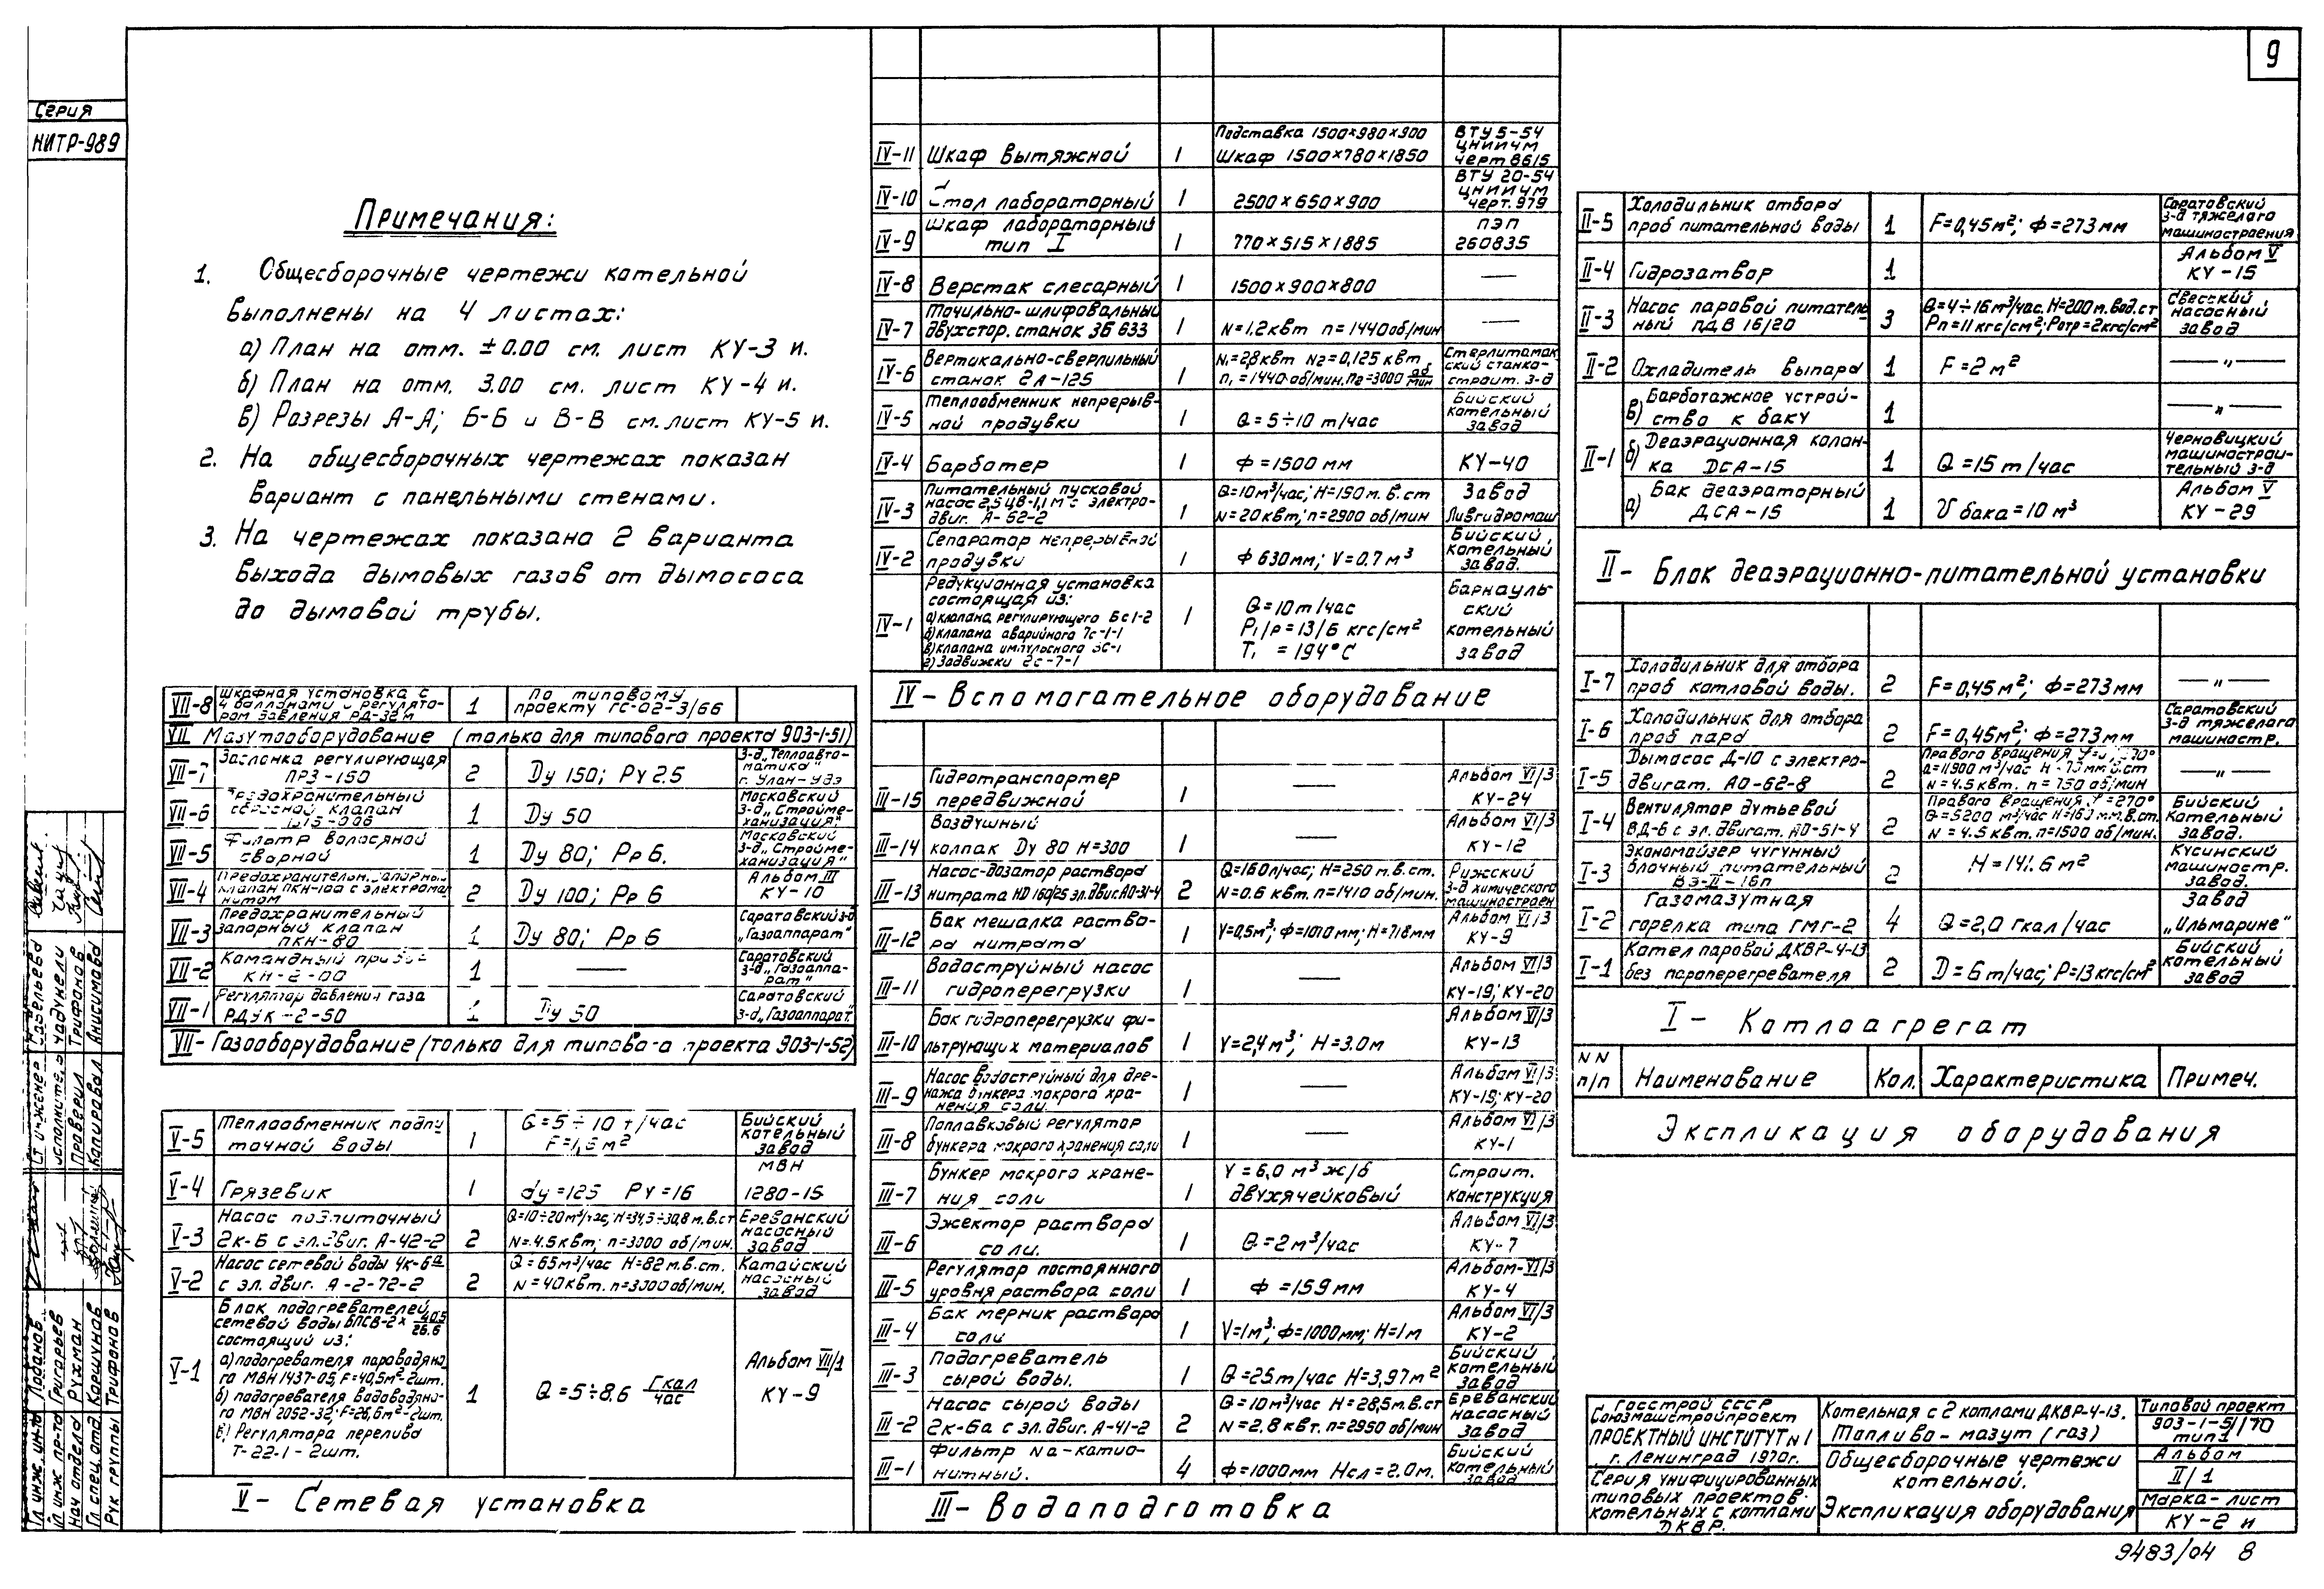 9
Серия
НИТР-989
Примечания:
1. Общесборочные чертежи котельной
выполнены на 4 листах:
а) План на отм. ±0.00 см. лист КУ-3 и.
б) План на отм. 3.00 см. лист КУ-4 и.
в) Разрезы А-А; Б-Б и В-В см. лист КУ-5 и.
2. На общесборочных чертежах показан
вариант с панельными стенами.
3. На чертежах показано 2 варианта
выхода дымовых газов от дымососа
до дымовой трубы.
VII-8 Шкафная установка с 4 баллонами и регулято-ром давления РД-32м 1 По типовому проекту ГС-02-3/66
VII Мазутооборудование (только для типового проекта 903-1-51)
VII-7 Заслонка регулирующая ПРЗ-150 2 Dy 150; Ру 2.5 З-д "Теплоавто-матика" г. Улан-Удэ
VII-6 сбросной клапан 1 Dy 50 Московский з-д "Стройме-ханизация"
VII-5 Фильтр волосяной сварной 1 Dy 80; Рр 6. Московский з-д "Стройме-ханизация"
VII-4 Предохранительн. запорный клапан ПКН-100 с электромагнитом 2 Dy 100; Рр 6 Альбом III КУ-10
VII-3 Предохранительный запорный клапан ПКН-80 1 Dy 80; Рр 6 Саратовский з-д "Газоаппарат"
VII-2 Командный прибор КН-2-00 1 — Саратовский з-д "Газоаппа-рат"
VII-1 Регулятор давления газа РДУК-2-50 1 Dy 50 Саратовский з-д "Газоаппарат"
VII- Газооборудование (только для типового проекта 903-1-52)
V-5 Теплообменник подпи-точной воды 1 G=5÷10 т/час Бийский котельный завод
V-4 Грязевик 1 dу=125 РУ=16 МВН 1280-15
V-3 Насос подпиточный 2К-6 с эл. двиг. А-42-2 2 Q=10÷20м³/час, Н=34,5÷30,8 м.в.ст N=4.5квт; n=3000 об/мин. Ереванский насосный завод
V-2 Насос сетевой воды 4К-6а с эл. двиг. А-2-72-2 2 Q=65м³/час Н=82м.в.ст. N=40квт. n=3000об/мин. Катайский насосный завод
V-1 Блок подогревателей сетевой воды БПСВ-2× 40.5/26.6 состоящий из:
а) подогревателя пароводяно-го МВН 1437-05, F=40,5м²-2шт.
б) подогревателя водоводяно-го МВН 2052-32; F=26,6м²-2шт.
в) Регулятора перелива Т-22-1-2шт.
1 Q=5÷8.6 Гкал/час Альбом VII/1 КУ-9
V- Сетевая установка
IV-11 Шкаф вытяжной 1 Подставка 1500×980×900 Шкаф 1500×780×1850 ВТУ 5-54 ЦНИИЧМ черт 8615
IV-10 Стол лабораторный 1 2500×650×900 ВТУ 20-54 ЦНИИЧМ черт. 979
IV-9 Шкаф лабораторный тип I 1 770×515×1885 ПЭП 260835
IV-8 Верстак слесарный 1 1500×900×800 —
IV-7 Точильно-шлифовальный двухстор. станок 3Б 633 1 N=1,2квт n=1440об/мин —
IV-6 Вертикально-сверлильный станок 2А-125 1 N₁=2,8квт N₂=0,125 квт n₁=1440 об/мин. n₂=3000 об/мин Стерлитамак-ский станко-строит. з-д
IV-5 Теплообменник непрерыв-ной продувки 1 Q=5÷10 т/час Бийский котельный завод
IV-4 Барботер 1 Ф=1500 мм КУ-40
IV-3 Питательный пусковой насос 2,5 ЦВ-1,1М с электро-двиг. А-62-2 1 Q=10м³/час; Н=150 м.в.ст N=20квт; n=2900 об/мин Завод Ливгидромаш
IV-2 Сепаратор непрерывной продувки 1 Ф 630мм; V=0.7 м³ Бийский котельный завод.
IV-1 Редукционная установка состоящая из:
а) клапана регулирующего 6с1-2
б) клапана аварийного 7с-1-1
в) клапана импульсного 3с-1
г) Задвижки 2с-7-1
1 Q=10т/час Р₁/Р=13/6 кгс/см² Т₁=194°С Барнауль-ский котельный завод
IV- Вспомогательное оборудование
III-15 Гидротранспортер передвижной 1 — Альбом VI/3 КУ-24
III-14 Воздушный колпак Dy 80 Н=300 1 — Альбом VI/3 КУ-12
III-13 Насос-дозатор раствора нитрата НД 160/25 эл. двиг. АО-31-4 2 Q=160л/час; Н=250 м.в.ст. N=0.6 квт. n=1410 об/мин. Рижский з-д химического машиностроен
III-12 Бак мешалка раство-ра нитрата 1 V=0,5м³; Ф=1010мм; Н=718мм Альбом VI/3 КУ-9
III-11 Водоструйный насос гидроперегрузки 1 — Альбом VI/3 КУ-19; КУ-20
III-10 Бак гидроперегрузки фи-льтрующих материалов 1 V=2,4м³; Н=3.0м Альбом VI/3 КУ-13
III-9 Насос водоструйный для дре-нажа бункера мокрого хра-нения соли 1 — Альбом VI/3 КУ-19; КУ-20
III-8 Поплавковый регулятор бункера мокрого хранения соли 1 — Альбом VI/3 КУ-1
III-7 Бункер мокрого хране-ния соли 1 V=6,0 м³ ж/б двухячейковый Строит. конструкция
III-6 Эжектор раствора соли. 1 Q=2м³/час Альбом VI/3 КУ-7
III-5 Регулятор постоянного уровня раствора соли 1 Ф=159мм Альбом-VI/3 КУ-4
III-4 Бак мерник раствора соли 1 V=1м³; Ф=1000мм; Н=1м Альбом VI/3 КУ-2
III-3 Подогреватель сырой воды. 1 Q=25т/час Н=3,97м² Бийский котельный завод
III-2 Насос сырой воды 2К-6а с эл. двиг. А-41-2 2 Q=10м³/час Н=28,5м.в.ст N=2,8квт. n=2950 об/мин Ереванский насосный завод
III-1 Фильтр Na-катио-нитный. 4 Ф=1000мм Нсл=2.0м. Бийский котельный завод
III- Водоподготовка
II-5 Холодильник отбора проб питательной воды 1 F=0,45м²; Ф=273мм Саратовский з-д тяжелого машиностроения
II-4 Гидрозатвор 1 Альбом V КУ-15
II-3 Насос паровой питатель-ный ПДВ 16/20 3 Q=4÷16м³/час. Н=200м.вод.ст Рп=11кгс/см²; Ротр=2кгс/см² Свесский насосный завод
II-2 Охладитель выпара 1 F=2м² —"—
II-1 в) Барботажное устрой-ство к баку 1 —"—
б) Деаэрационная колон-ка ДСА-15 1 Q=15т/час Черновицкий машинострои-тельный з-д
а) Бак деаэраторный ДСА-15 1 V бака=10м³ Альбом V КУ-29
II- Блок деаэрационно-питательной установки
I-7 Холодильник для отбора проб котловой воды. 2 F=0,45м²; Ф=273мм —"—
I-6 Холодильник для отбора проб пара 2 F=0,45м²; Ф=273мм Саратовский з-д тяжелого машиностр.
I-5 Дымосос Д-10 с электро-двигат. АО-62-8 2 Правого вращения Q=11900 м³/час N=4.5квт. n=750 об/мин —"—
I-4 Вентилятор дутьевой ВД-6 с эл. двигат. АО-51-4 2 Правого вращения φ=270° Q=5200 м³/час Н=160 м.м.в.ст. N=4.5квт. n=1500 об/мин. Бийский котельный завод.
I-3 Экономайзер чугунный блочный питательный ВЭ-II-16п 2 Н=141.6м² Кусинский машиностр. завод.
I-2 Газомазутная горелка типа ГМГ-2 4 Q=2,0 Гкал/час Завод "Ильмарине"
I-1 Котел паровой ДКВР-4-13 без пароперегревателя 2 D=6т/час; Р=13кгс/см² Бийский котельный завод
I- Котлоагрегат
NN п/п Наименование Кол. Характеристика Примеч.
Экспликация оборудования
Госстрой СССР
Союзмашстройпроект
ПРОЕКТНЫЙ ИНСТИТУТ N1
г. Ленинград 1970г.
Серия унифицированных
типовых проектов
котельных с котлами
ДКВР.
Котельная с 2 котлами ДКВР-4-13.
Топливо-мазут (газ)
Общесборочные чертежи
котельной.
Экспликация оборудования
Типовой проект
903-1-51/70
тип 1
Альбом
II/1
Марка-лист
КУ-2 и
9483/04 8
Гл инж. ин-та Лобанов
Гл инж пр-та Григорьев
Нач отдела Рухман
Гл спец. отд. Каршунов
Рук группы Трифанов
Ст инженер Газельева
Исполнител Чадунели
Проверил Трифанов
Копировал Анисимова